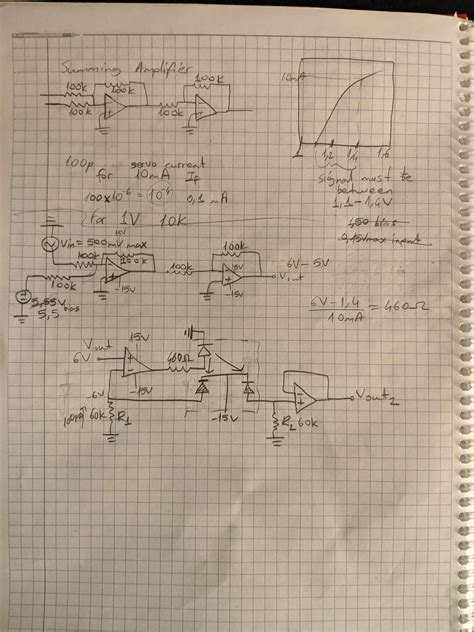 Summing Amplifier
100k 100k 100k 100k
100k
10mA
1 1,2 1,4 1,6
signal must be
between
1,1 - 1,4V
100µ servo current
for 10mA IF
100x10^-6 = 10^-4 0,1 mA
for 1V 10k
Vin = 500mV max
100k 100k 15V 100k 100k 15V
-15V -15V
6V - 5V
Vout
100k
5,55V bias
5,5
6V-1,4
10mA
= 460Ω
Vout
6V
15V
-15V
460Ω
6V
100µA 60k R1
-15V
R2 60k
Vout2